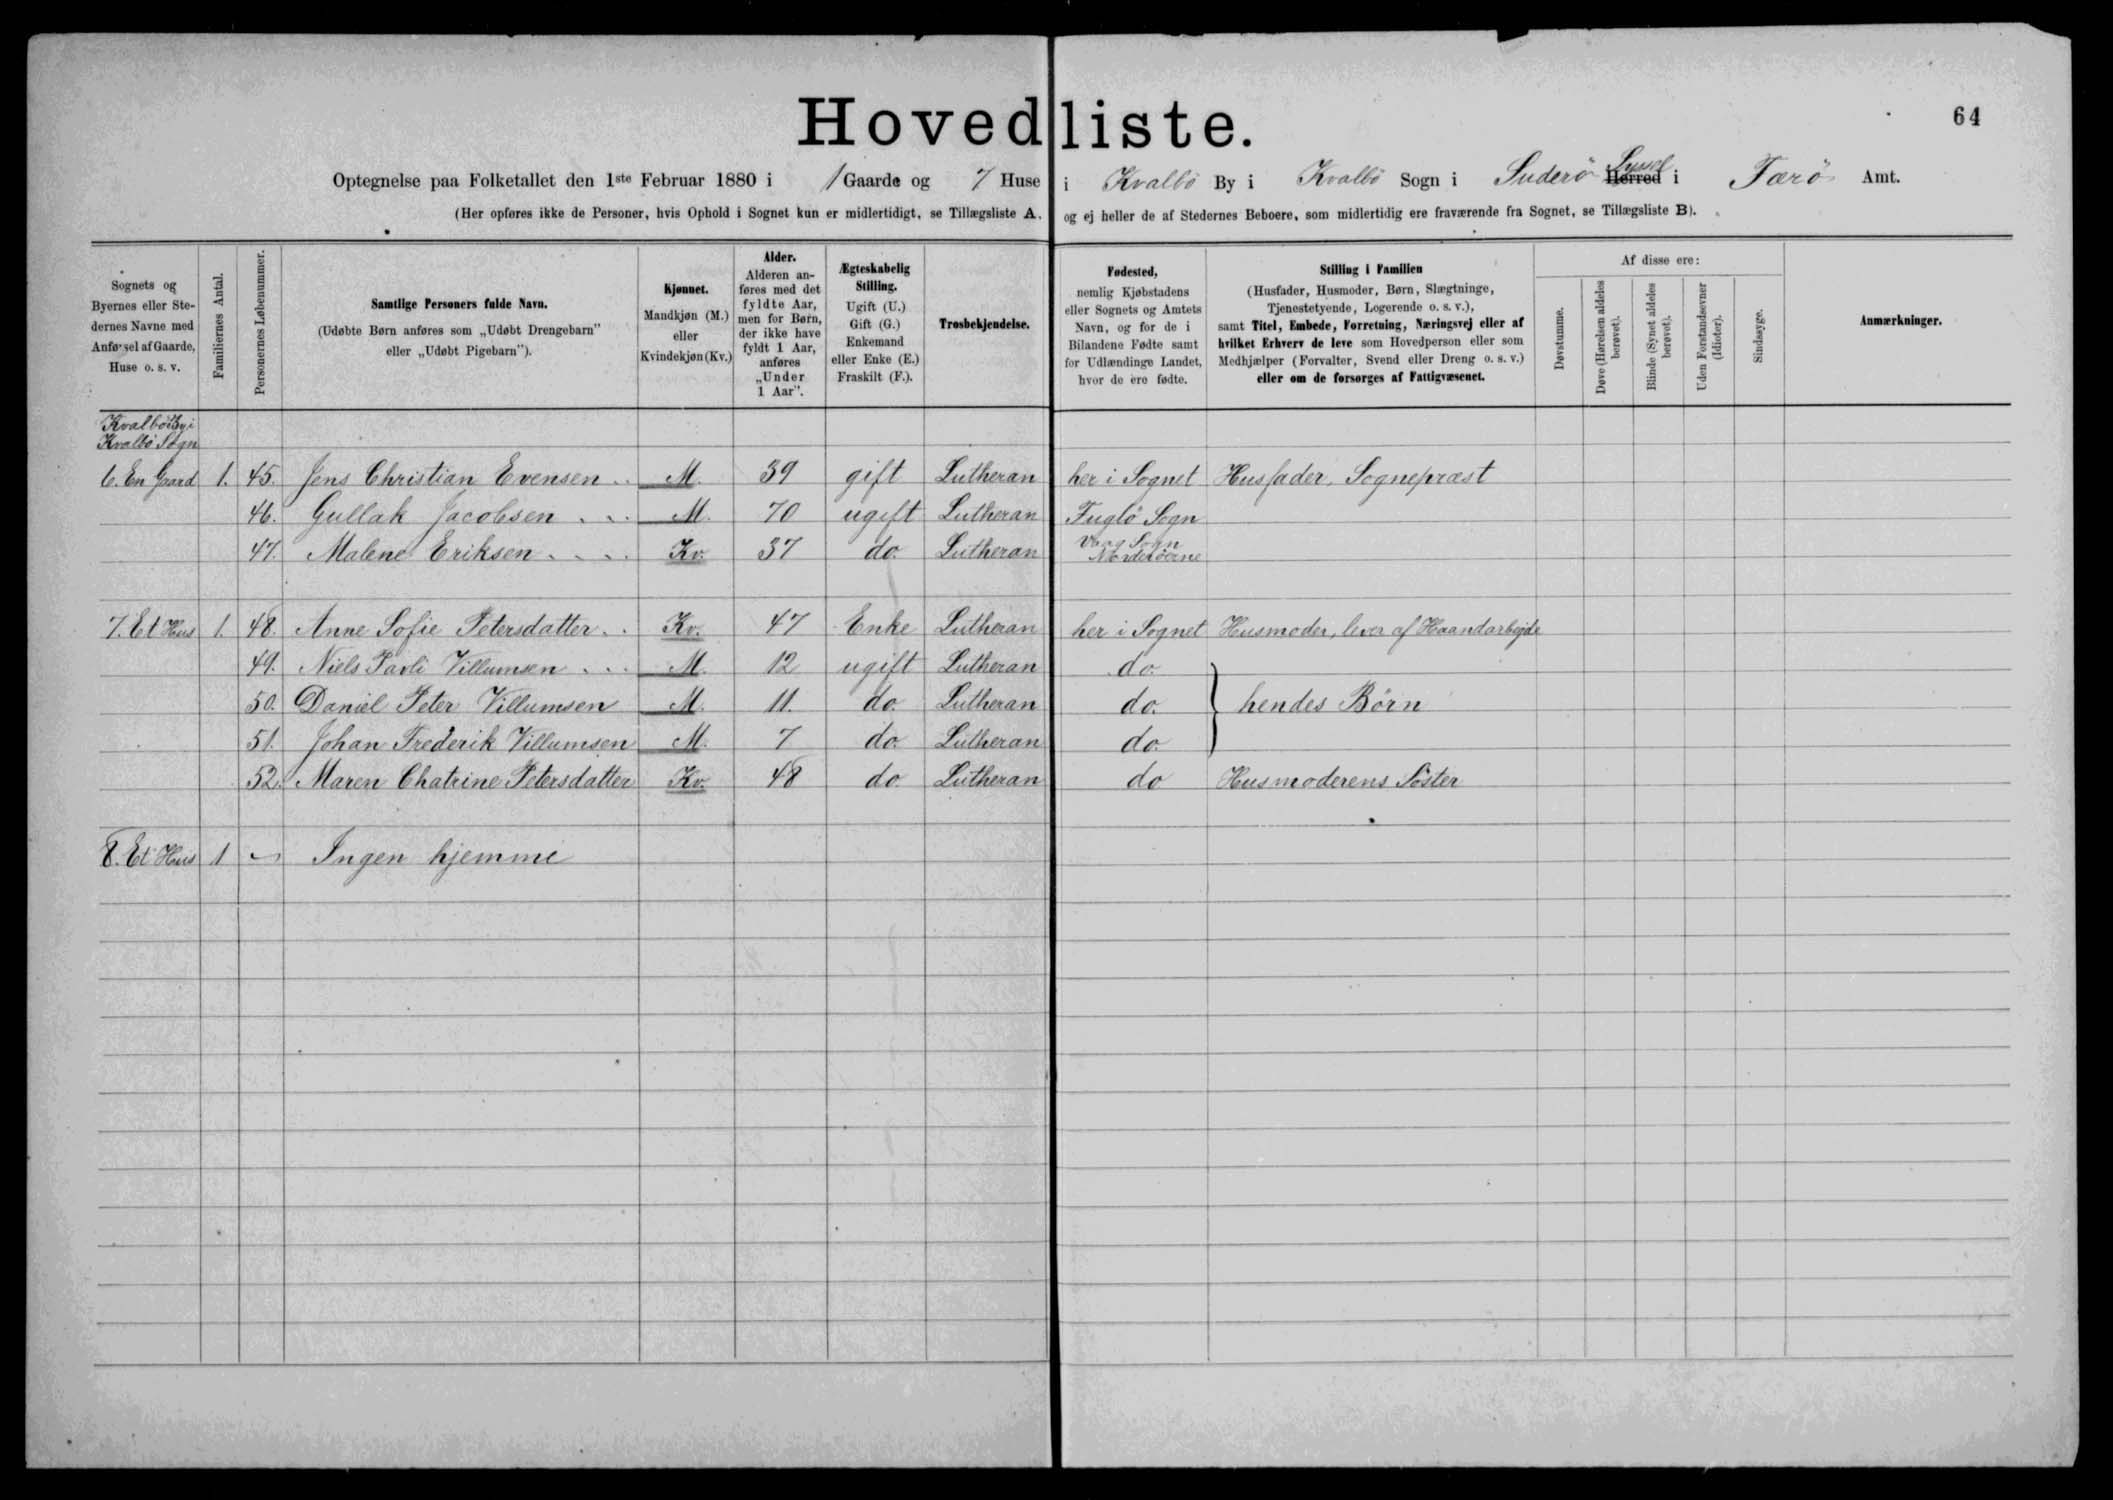 Hovedliste.
64
Optegnelse paa Folketallet den 1ste Februar 1880 i 1 Gaarde og 7 Huse i Kvalbö By i Kvalbö Sogn i Suderö Herred Syssel i Færö Amt.
(Her opføres ikke de Personer, hvis Ophold i Sognet kun er midlertidigt, se Tillægsliste A. og ej heller de af Stedernes Beboere, som midlertidig ere fraværende fra Sognet, se Tillægsliste B).
Sognets og Byernes eller Stedernes Navne med Anførsel af Gaarde, Huse o. s. v.
Familiernes Antal.
Personernes Løbenummer.
Samtlige Personers fulde Navn.
(Udøbte Børn anføres som „Udøbt Drengebarn" eller „Udøbt Pigebarn").
Kjønnet.
Mandkjøn (M.) eller Kvindekjøn (Kv.)
Alder.
Alderen anføres med det fyldte Aar, men for Børn, der ikke have fyldt 1 Aar, anføres „Under 1 Aar".
Ægteskabelig Stilling.
Ugift (U.) Gift (G.) Enkemand eller Enke (E.) Fraskilt (F.).
Trosbekjendelse.
Fødested,
nemlig Kjøbstadens eller Sognets og Amtets Navn, og for de i Bilandene Fødte samt for Udlændinge Landet, hvor de ere fødte.
Stilling i Familien
(Husfader, Husmoder, Børn, Slægtninge, Tjenestetyende, Logerende o. s. v.), samt Titel, Embede, Forretning, Næringsvej eller af hvilket Erhverv de leve som Hovedperson eller som Medhjælper (Forvalter, Svend eller Dreng o. s. v.) eller om de forsørges af Fattigvæsenet.
Af disse ere:
Døvstumme.
Døve (Hørelsen aldeles berøvet).
Blinde (Synet aldeles berøvet).
Uden Forstandsevner (Idioter).
Sindssyge.
Anmærkninger.
Kvalbö By i
Kvalbö Sogn
6. En Gaard 1. 45. Jens Christian Evensen . . M. 39 gift Lutheran her i Sognet Husfader, Sognepræst
46. Gullak Jacobsen . . . M. 70 ugift Lutheran Fuglö Sogn
47. Malene Eriksen . . . . Kv. 37 do. Lutheran Vaag Sogn Norderöerne
7. Et Hus 1. 48. Anne Sofie Petersdatter . . Kv. 47 Enke Lutheran her i Sognet Husmoder, lever af Haandarbejde
49. Niels Pavli Villumsen . . . M. 12 ugift Lutheran do.
50. Daniel Peter Villumsen M. 11. do. Lutheran do. } hendes Börn
51. Johan Frederik Villumsen M. 7 do. Lutheran do.
52. Maren Chatrine Petersdatter Kv. 48 do. Lutheran do Husmoderens Söster
8. Et Hus 1 ~ Ingen hjemme